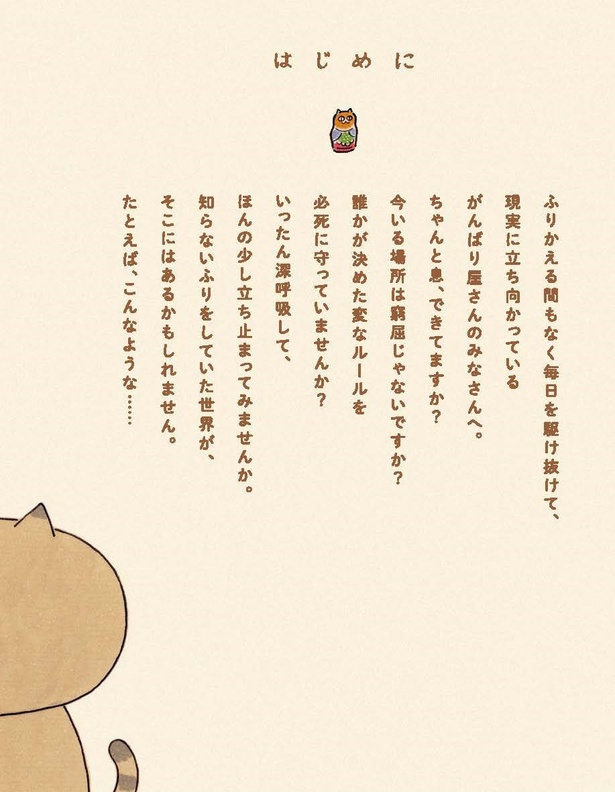 はじめに
ふりかえる間もなく毎日を駆け抜けて、
現実に立ち向かっている
がんばり屋さんのみなさんへ。
ちゃんと息、できてますか？
今いる場所は窮屈じゃないですか？
誰かが決めた変なルールを
必死に守っていませんか？
いったん深呼吸して、
ほんの少し立ち止まってみませんか。
知らないふりをしていた世界が、
そこにはあるかもしれません。
たとえば、こんなような……